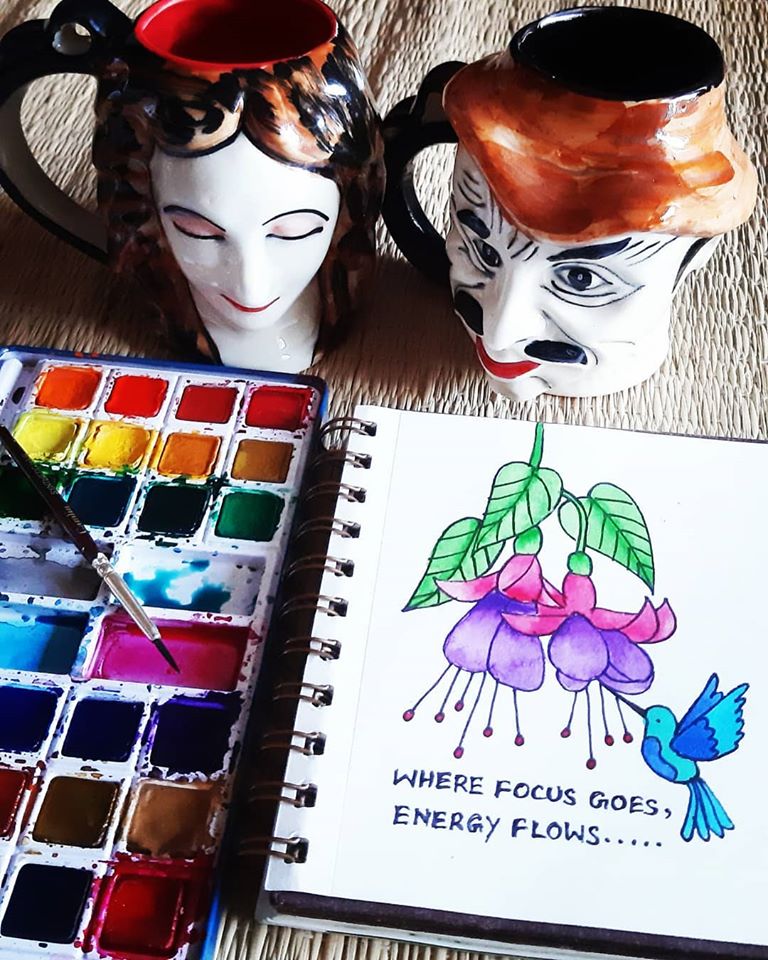 WHERE FOCUS GOES,
ENERGY FLOWS.....